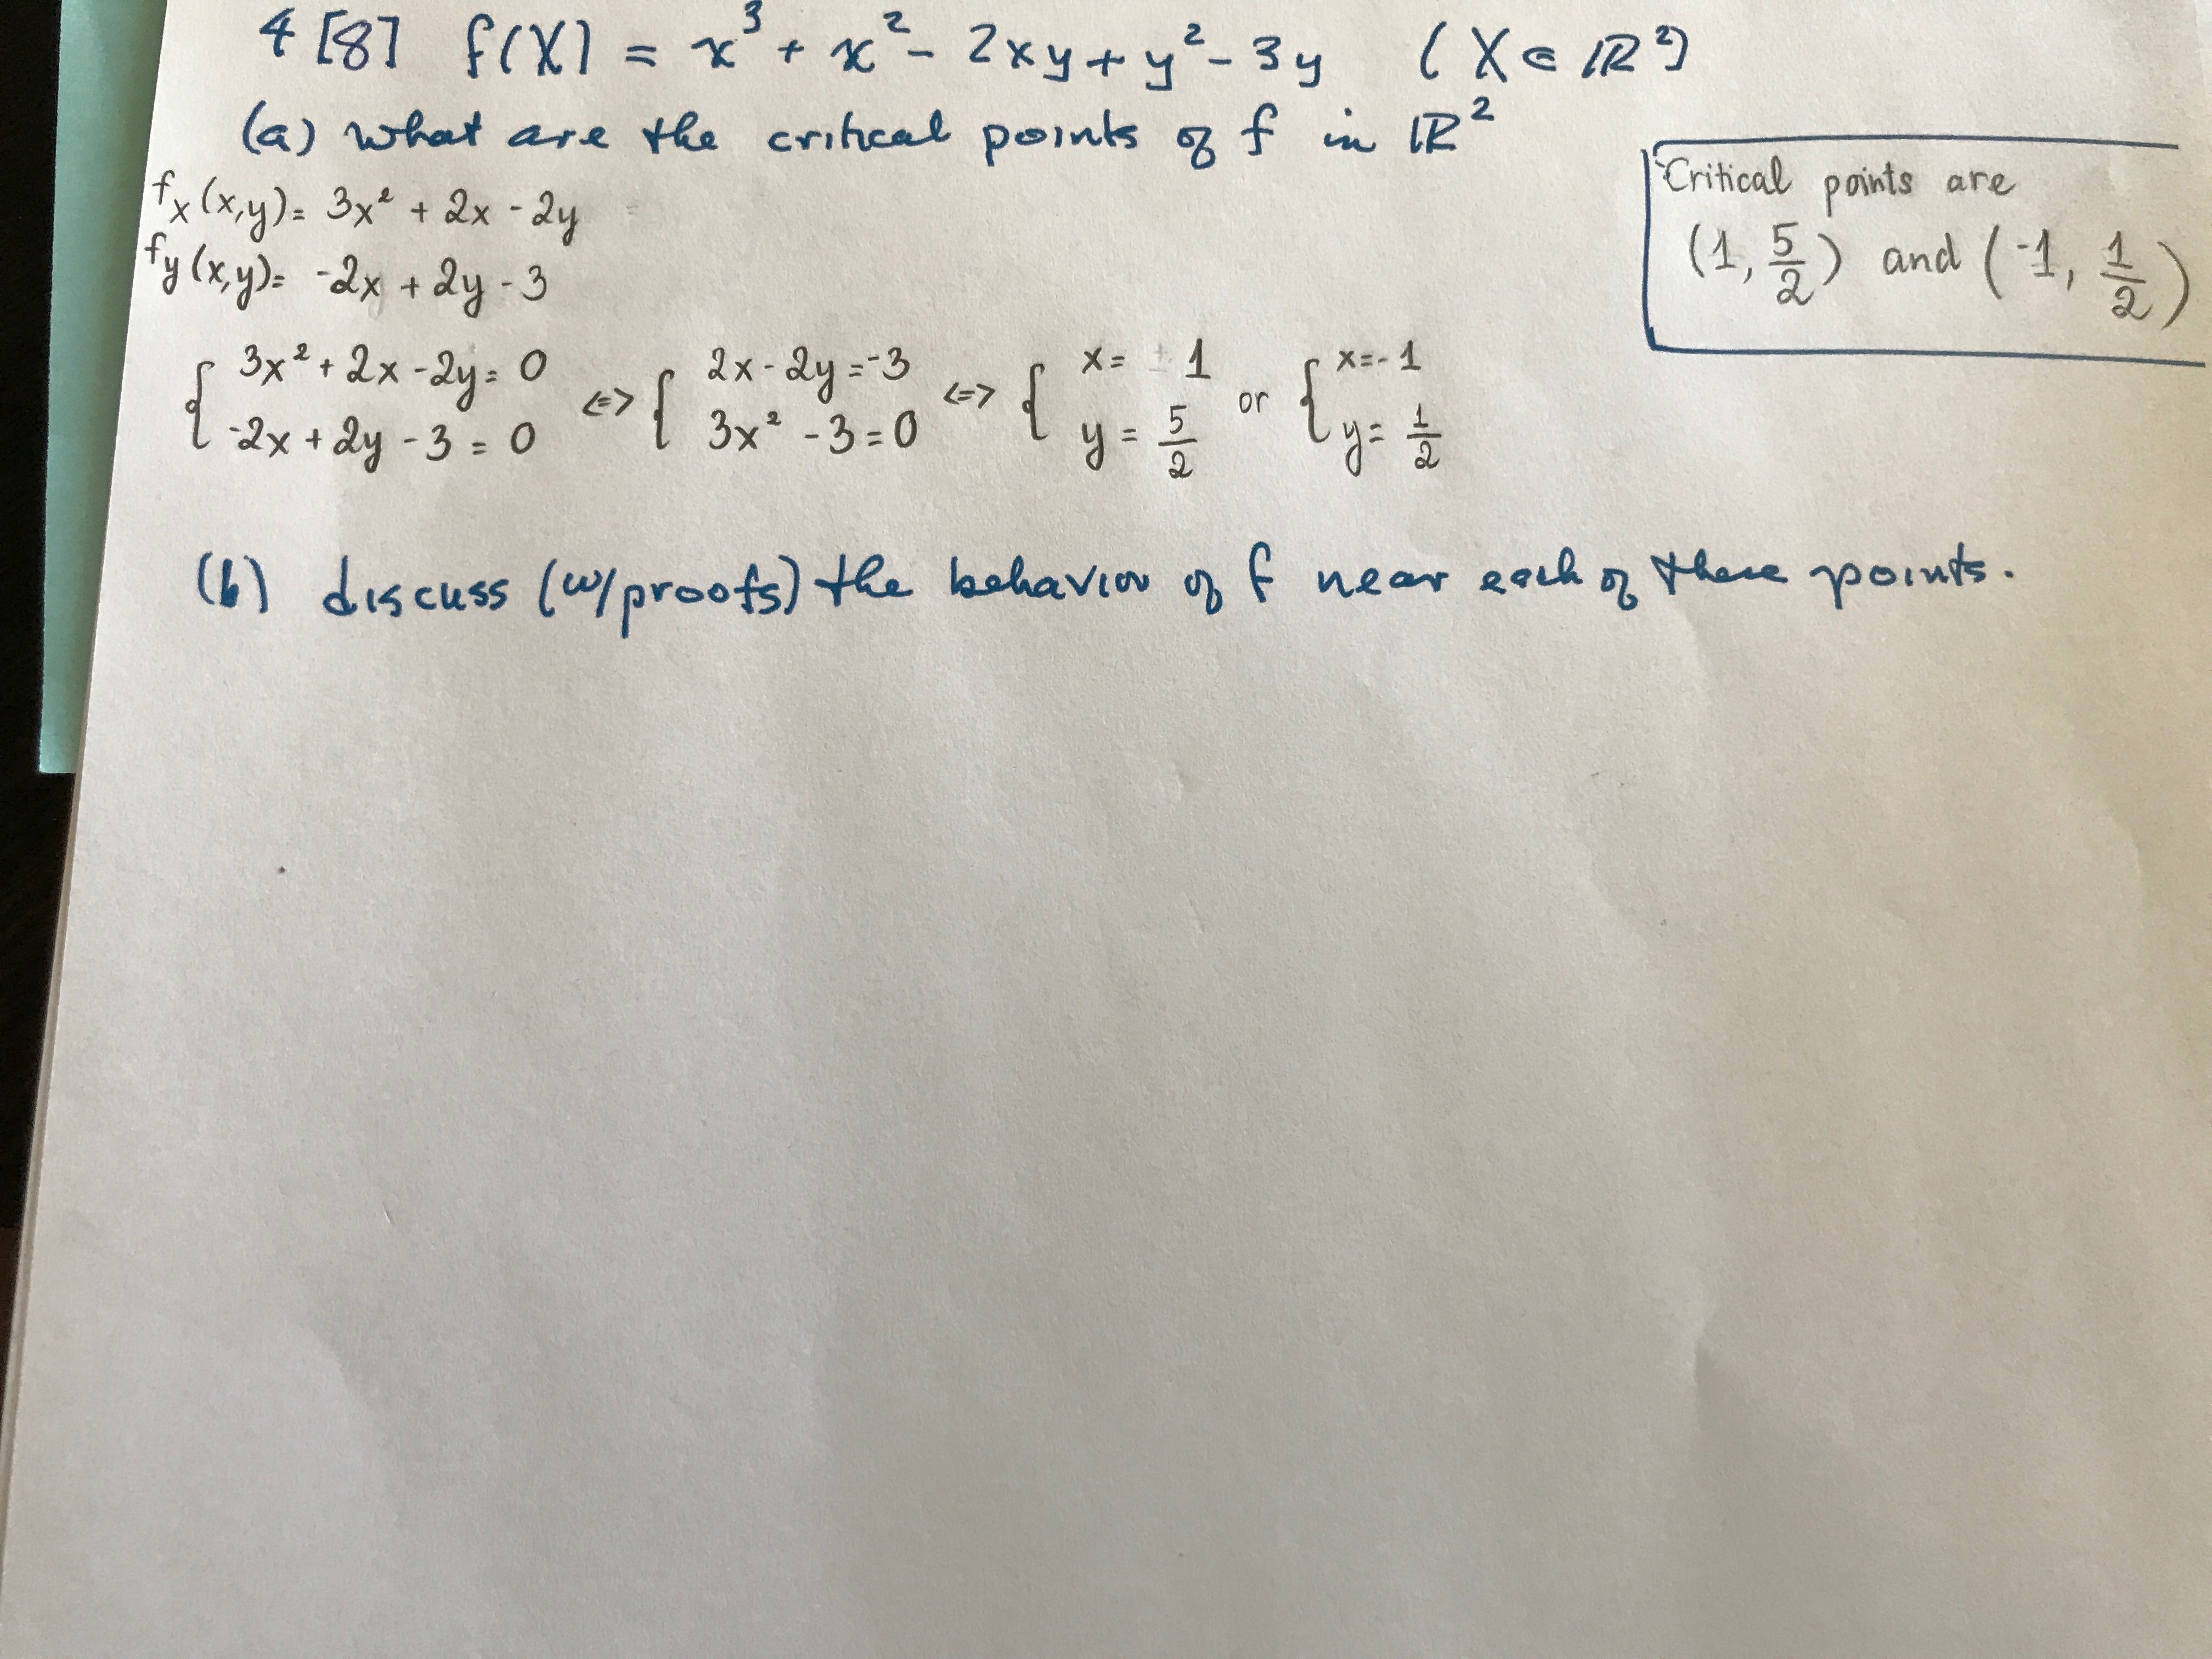 4 [8] f(X) = x³ + x² - 2xy + y² - 3y (X ∈ ℝ²)
(a) what are the critical points of f in ℝ²
f_x(x,y) = 3x² + 2x - 2y
f_y(x,y) = -2x + 2y - 3
Critical points are
(1, 5/2) and (-1, 1/2)
{ 3x² + 2x - 2y = 0 <=> { 2x - 2y = -3 <=> { x = 1 or { x = -1
-2x + 2y - 3 = 0 3x² - 3 = 0 y = 5/2 y = 1/2
(b) discuss (w/proofs) the behavior of f near each of these points.